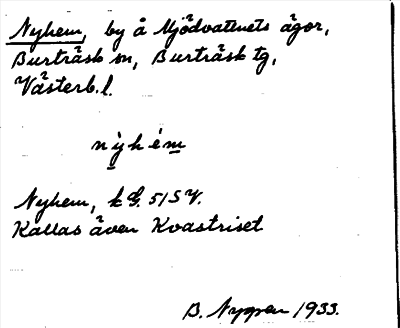 Nyhem, by å Mjödvattnets ägor,
Burträsk sn, Burträsk tg,
Västerb.l.
nỳhém
Nyhem, k G. 51 SV.
Kallas även Kvastriset
B. Nyman 1933.